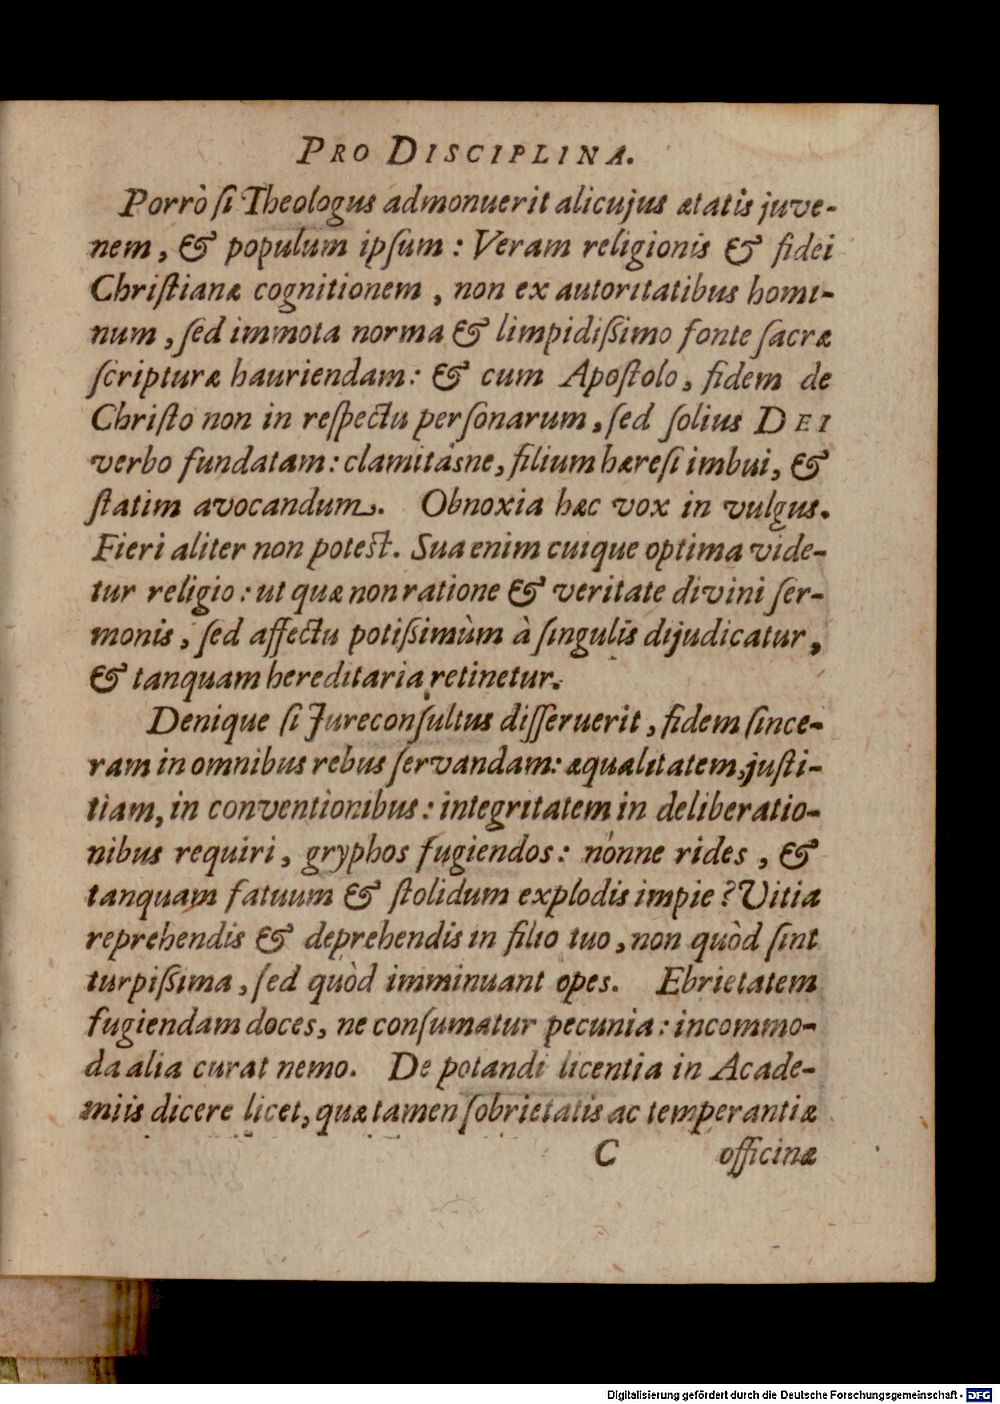 PRO DISCIPLINA.
Porrò ſi Theologus admonuerit alicujus ætatis juve-
nem, & populum ipſum: Veram religionis & fidei
Chriſtianæ cognitionem, non ex autoritatibus homi-
num, ſed immota norma & limpidiſſimo fonte ſacræ
ſcripturæ hauriendam: & cum Apoſtolo, fidem de
Chriſto non in reſpectu perſonarum, ſed ſolius DEI
verbo fundatam: clamitásne, filium hæreſi imbui, &
ſtatim avocandum. Obnoxia hæc vox in vulgus.
Fieri aliter non poteſt. Sua enim cuique optima vide-
tur religio: ut quæ non ratione & veritate divini ſer-
monis, ſed affectu potiſſimùm à ſingulis dijudicatur,
& tanquam hereditaria retinetur.
Denique ſi Jureconſultus diſſeruerit, fidem ſince-
ram in omnibus rebus ſervandam: æqualitatem, juſti-
tiam, in conventionibus: integritatem in deliberatio-
nibus requiri, gryphos fugiendos: nónne rides, &
tanquam fatuum & ſtolidum explodis impie? Vitia
reprehendis & deprehendis in filio tuo, non quòd ſint
turpiſſima, ſed quòd imminuant opes. Ebrietatem
fugiendam doces, ne conſumatur pecunia: incommo-
da alia curat nemo. De potandi licentia in Acade-
miis dicere licet, quæ tamen ſobrietatis ac temperantiæ
C officinæ
Digitalisierung gefördert durch die Deutsche Forschungsgemeinschaft - DFG